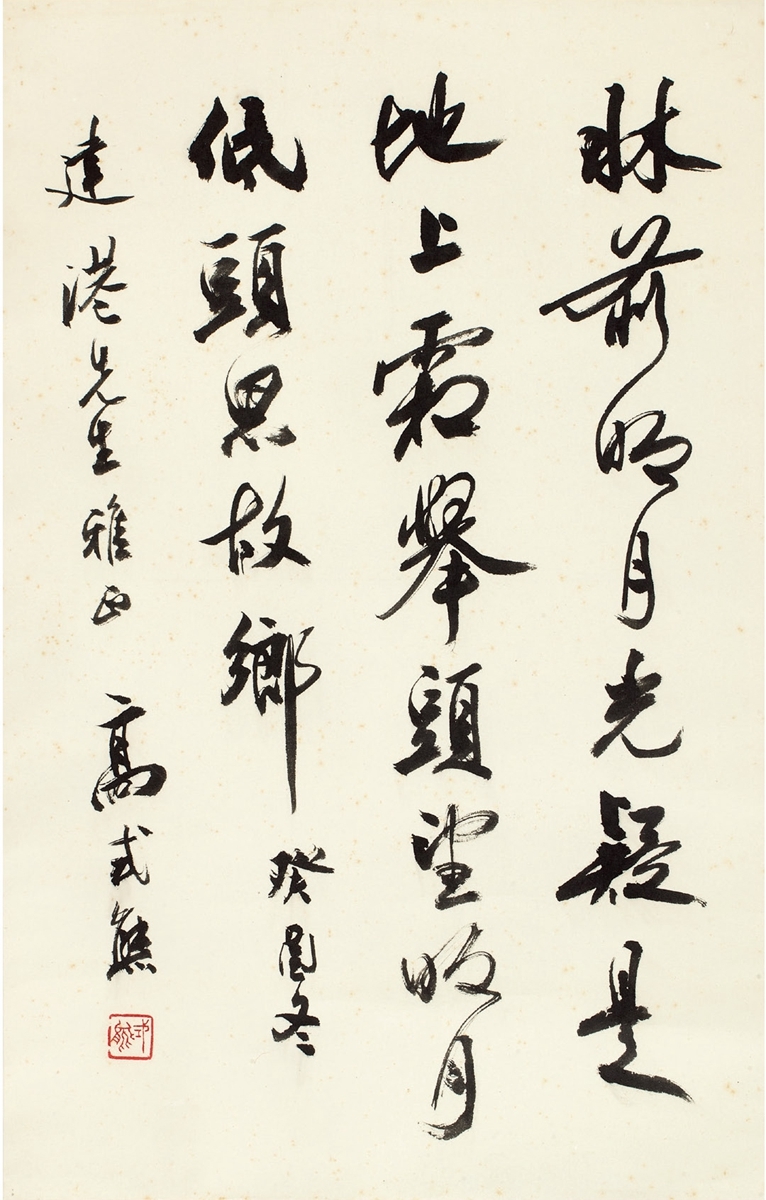 牀前明月光疑是
地上霜舉頭望明月
低頭思故鄉 癸酉冬
建港先生雅正 高式熊
式熊